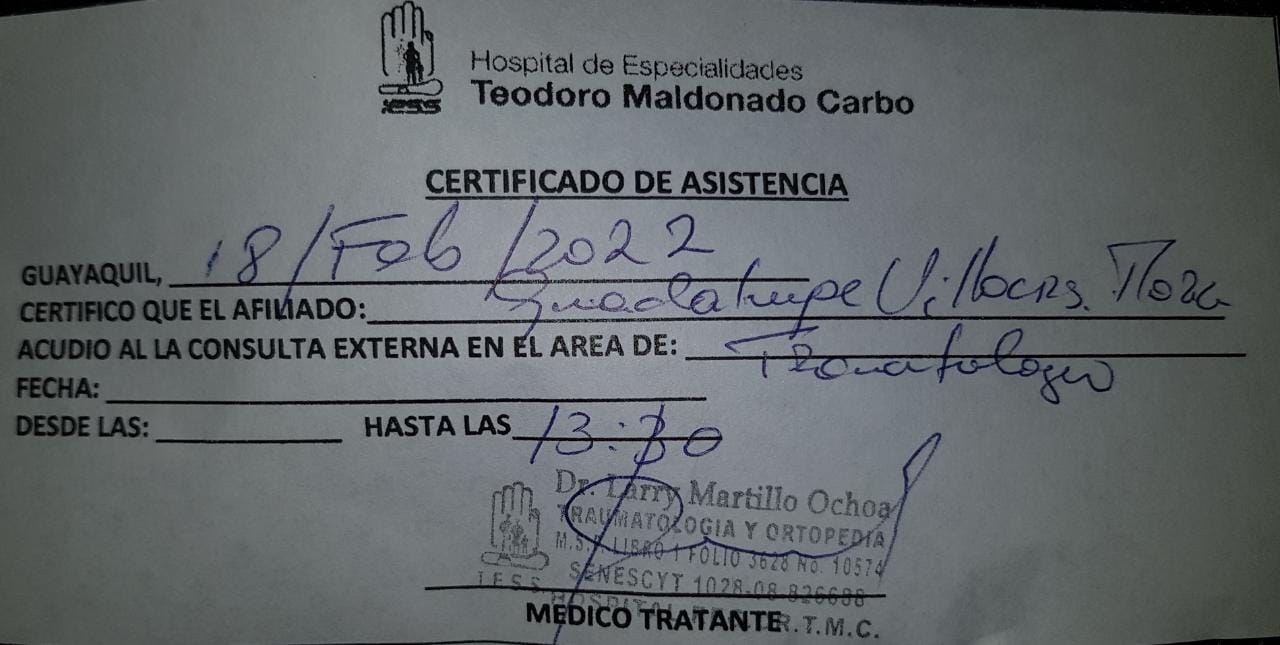 iess
Hospital de Especialidades
Teodoro Maldonado Carbo
CERTIFICADO DE ASISTENCIA
GUAYAQUIL, 18/Feb/2022
CERTIFICO QUE EL AFILIADO: Guadalupe Villacrs.
ACUDIO AL LA CONSULTA EXTERNA EN EL AREA DE:
FECHA:
DESDE LAS: HASTA LAS 13:30
Dr. Larry Martillo Ochoa
TRAUMATOLOGIA Y ORTOPEDIA
M.S.P. LIBRO 1 FOLIO 3628 No. 10574
SENESCYT 1028-08-826688
I.E.S.S. HOSPITAL R.T.M.C.
MEDICO TRATANTE